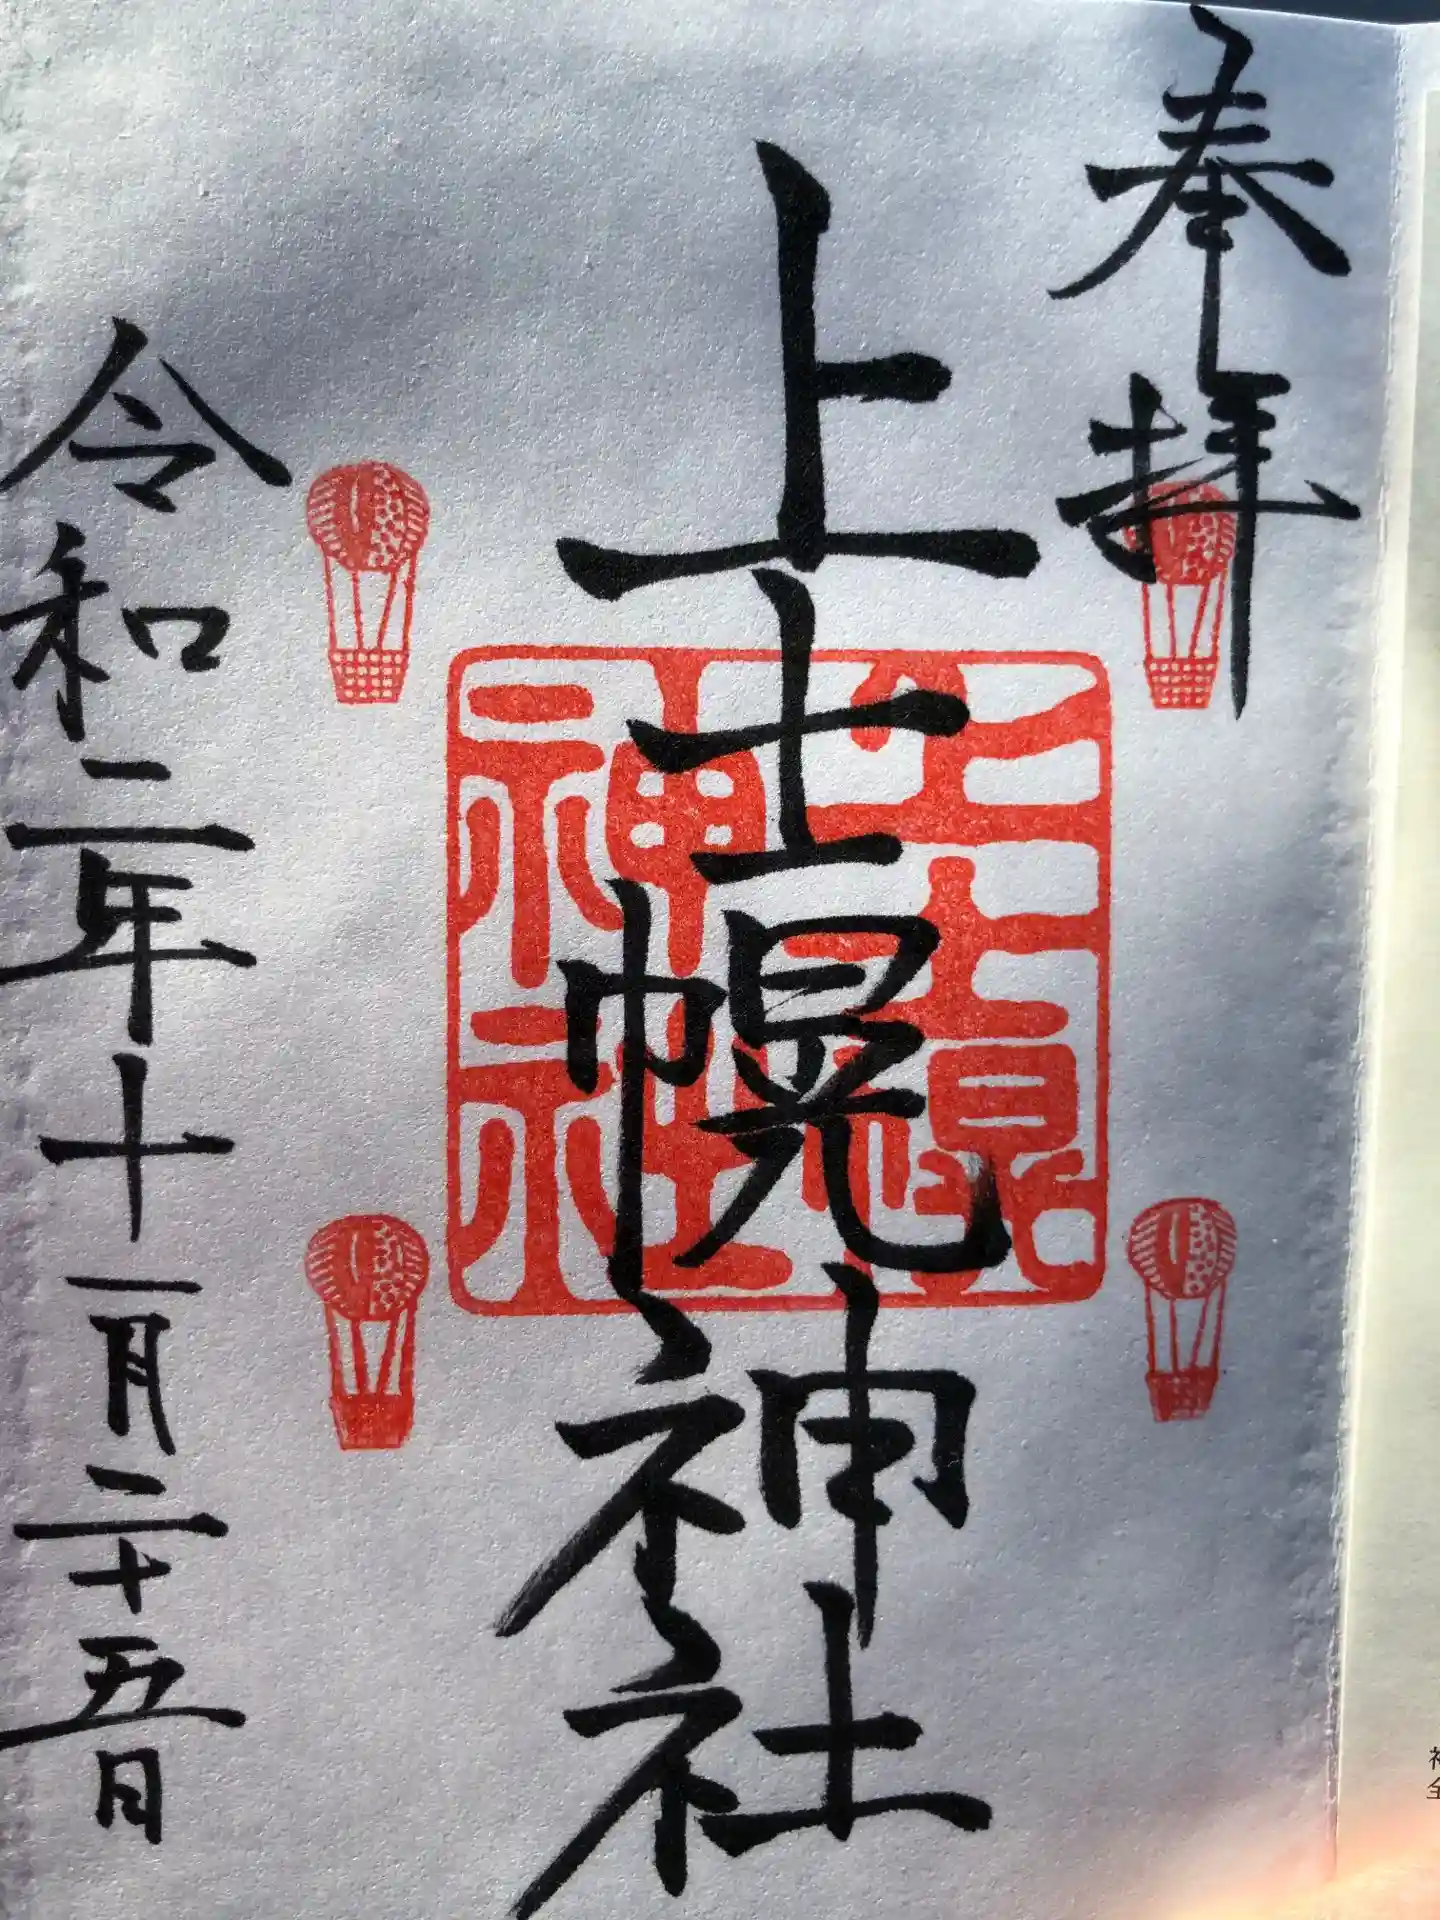 奉拝
上士幌神社
上士幌神社
令和二年十一月二十五日